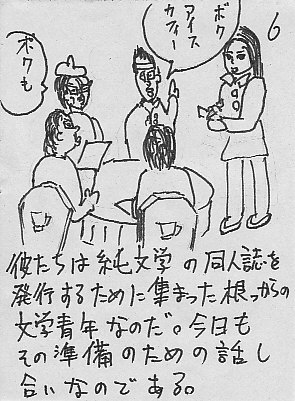 6
ボク
アイス
カフィー
ボクも
彼たちは純文学の同人誌を
発行するために集まった根っからの
文学青年なのだ。今日も
その準備のための話し
合いなのである。